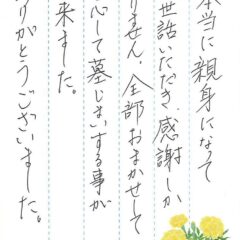 本当に親身になって
世話いただき、感謝しか
りません。全部おまかせして
心して墓じまいする事が
来ました。
りがとうございました。